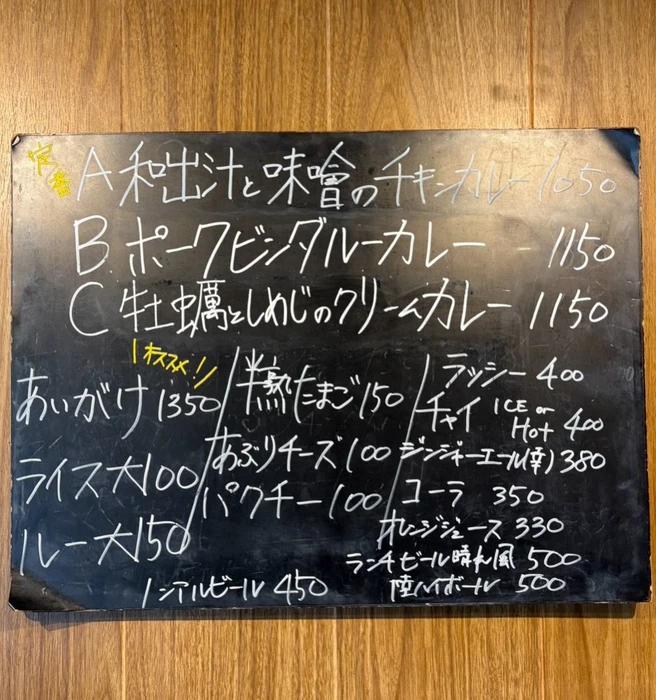 定番
A 和出汁と味噌のチキンカレー 1050
B ポークビンダルーカレー 1150
C 牡蠣としめじのクリームカレー 1150
オススメ!!
あいがけ 1350
ライス大 100
ルー大 150
半熟たまご 150
あぶりチーズ 100
パクチー 100
ラッシー 400
チャイ ICE or Hot 400
ジンジャーエール(辛) 380
コーラ 350
オレンジジュース 330
ランチビール 晴れ風 500
ハイボール 500
ノンアルビール 450